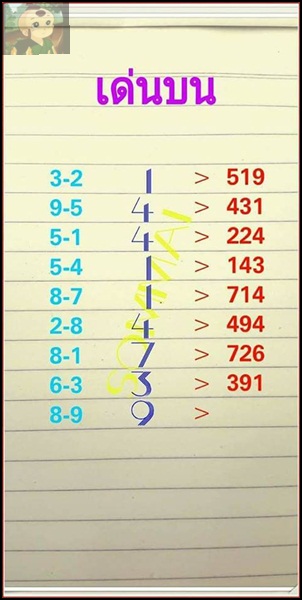 เด่นบน
3-2 1 > 519
9-5 4 > 431
5-1 4 > 224
5-4 1 > 143
8-7 1 > 714
2-8 4 > 494
8-1 7 > 726
6-3 3 > 391
8-9 9 >
SOMMAI